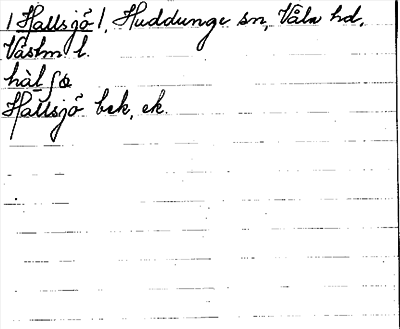 /Hallsjö/, Huddunge sn, Våla hd,
Västm l.
Hallsjö bek, ek.